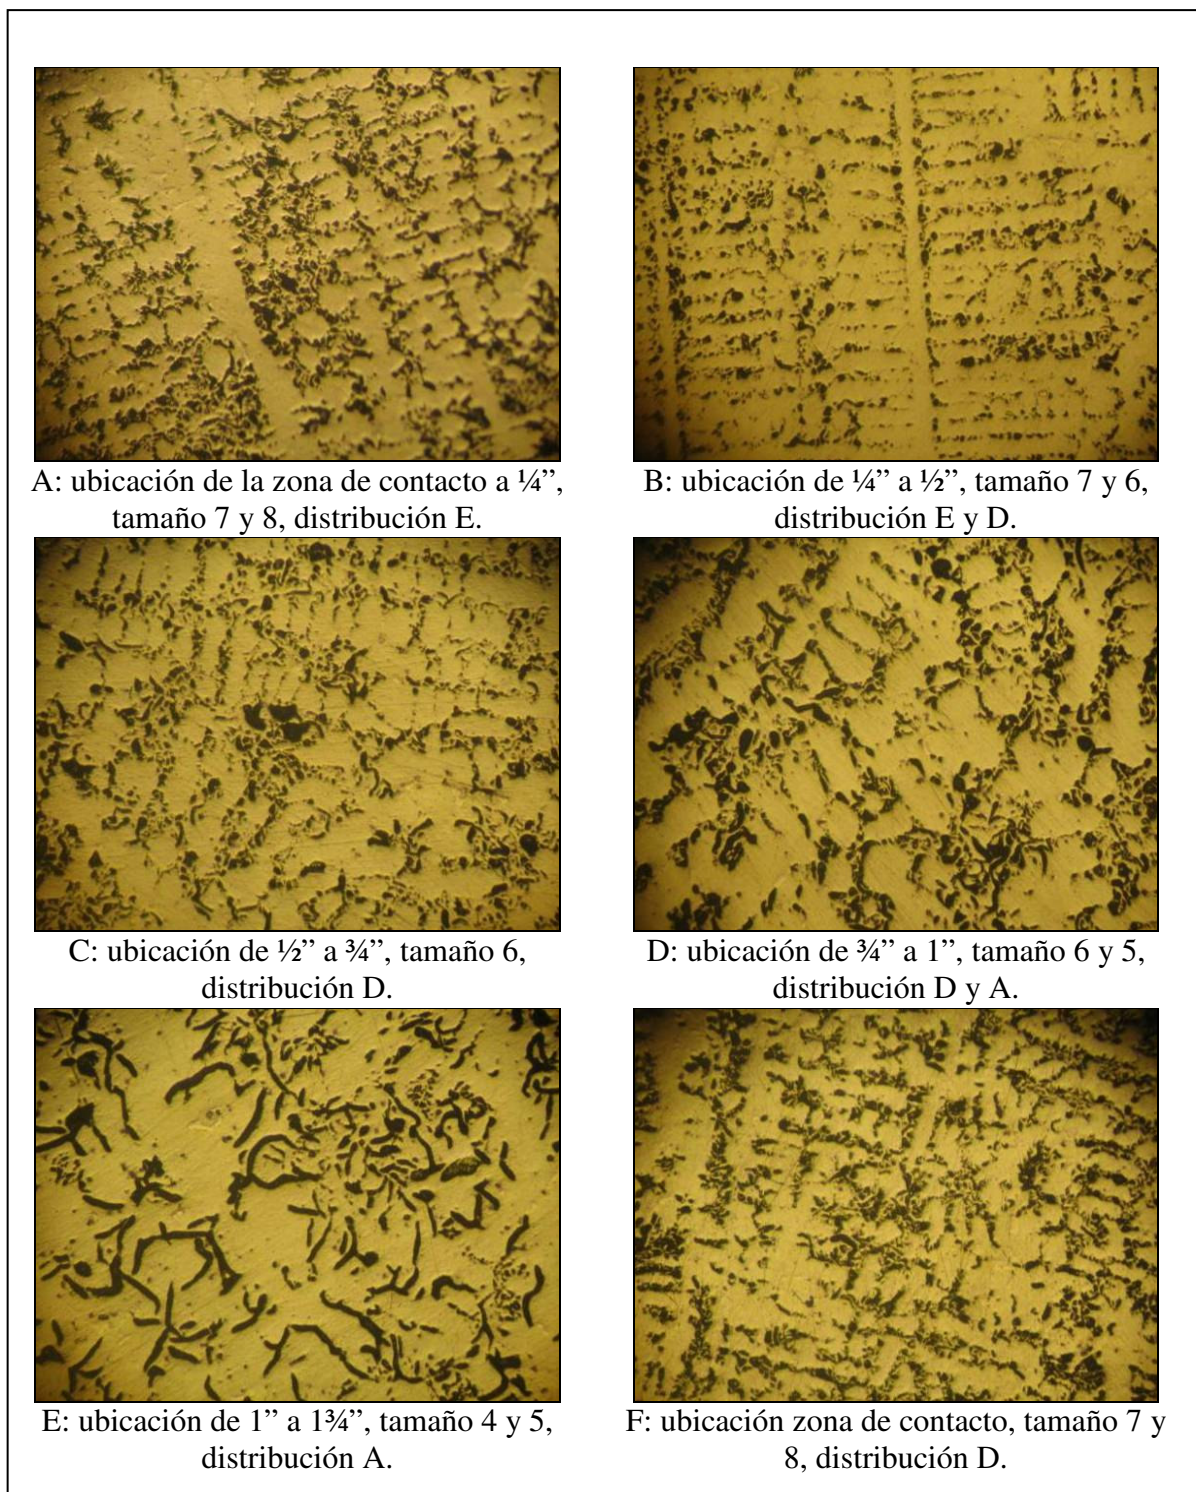 A: ubicación de la zona de contacto a ¼”,
tamaño 7 y 8, distribución E.
B: ubicación de ¼” a ½”, tamaño 7 y 6,
distribución E y D.
C: ubicación de ½” a ¾”, tamaño 6,
distribución D.
D: ubicación de ¾” a 1”, tamaño 6 y 5,
distribución D y A.
E: ubicación de 1” a 1¾”, tamaño 4 y 5,
distribución A.
F: ubicación zona de contacto, tamaño 7 y
8, distribución D.